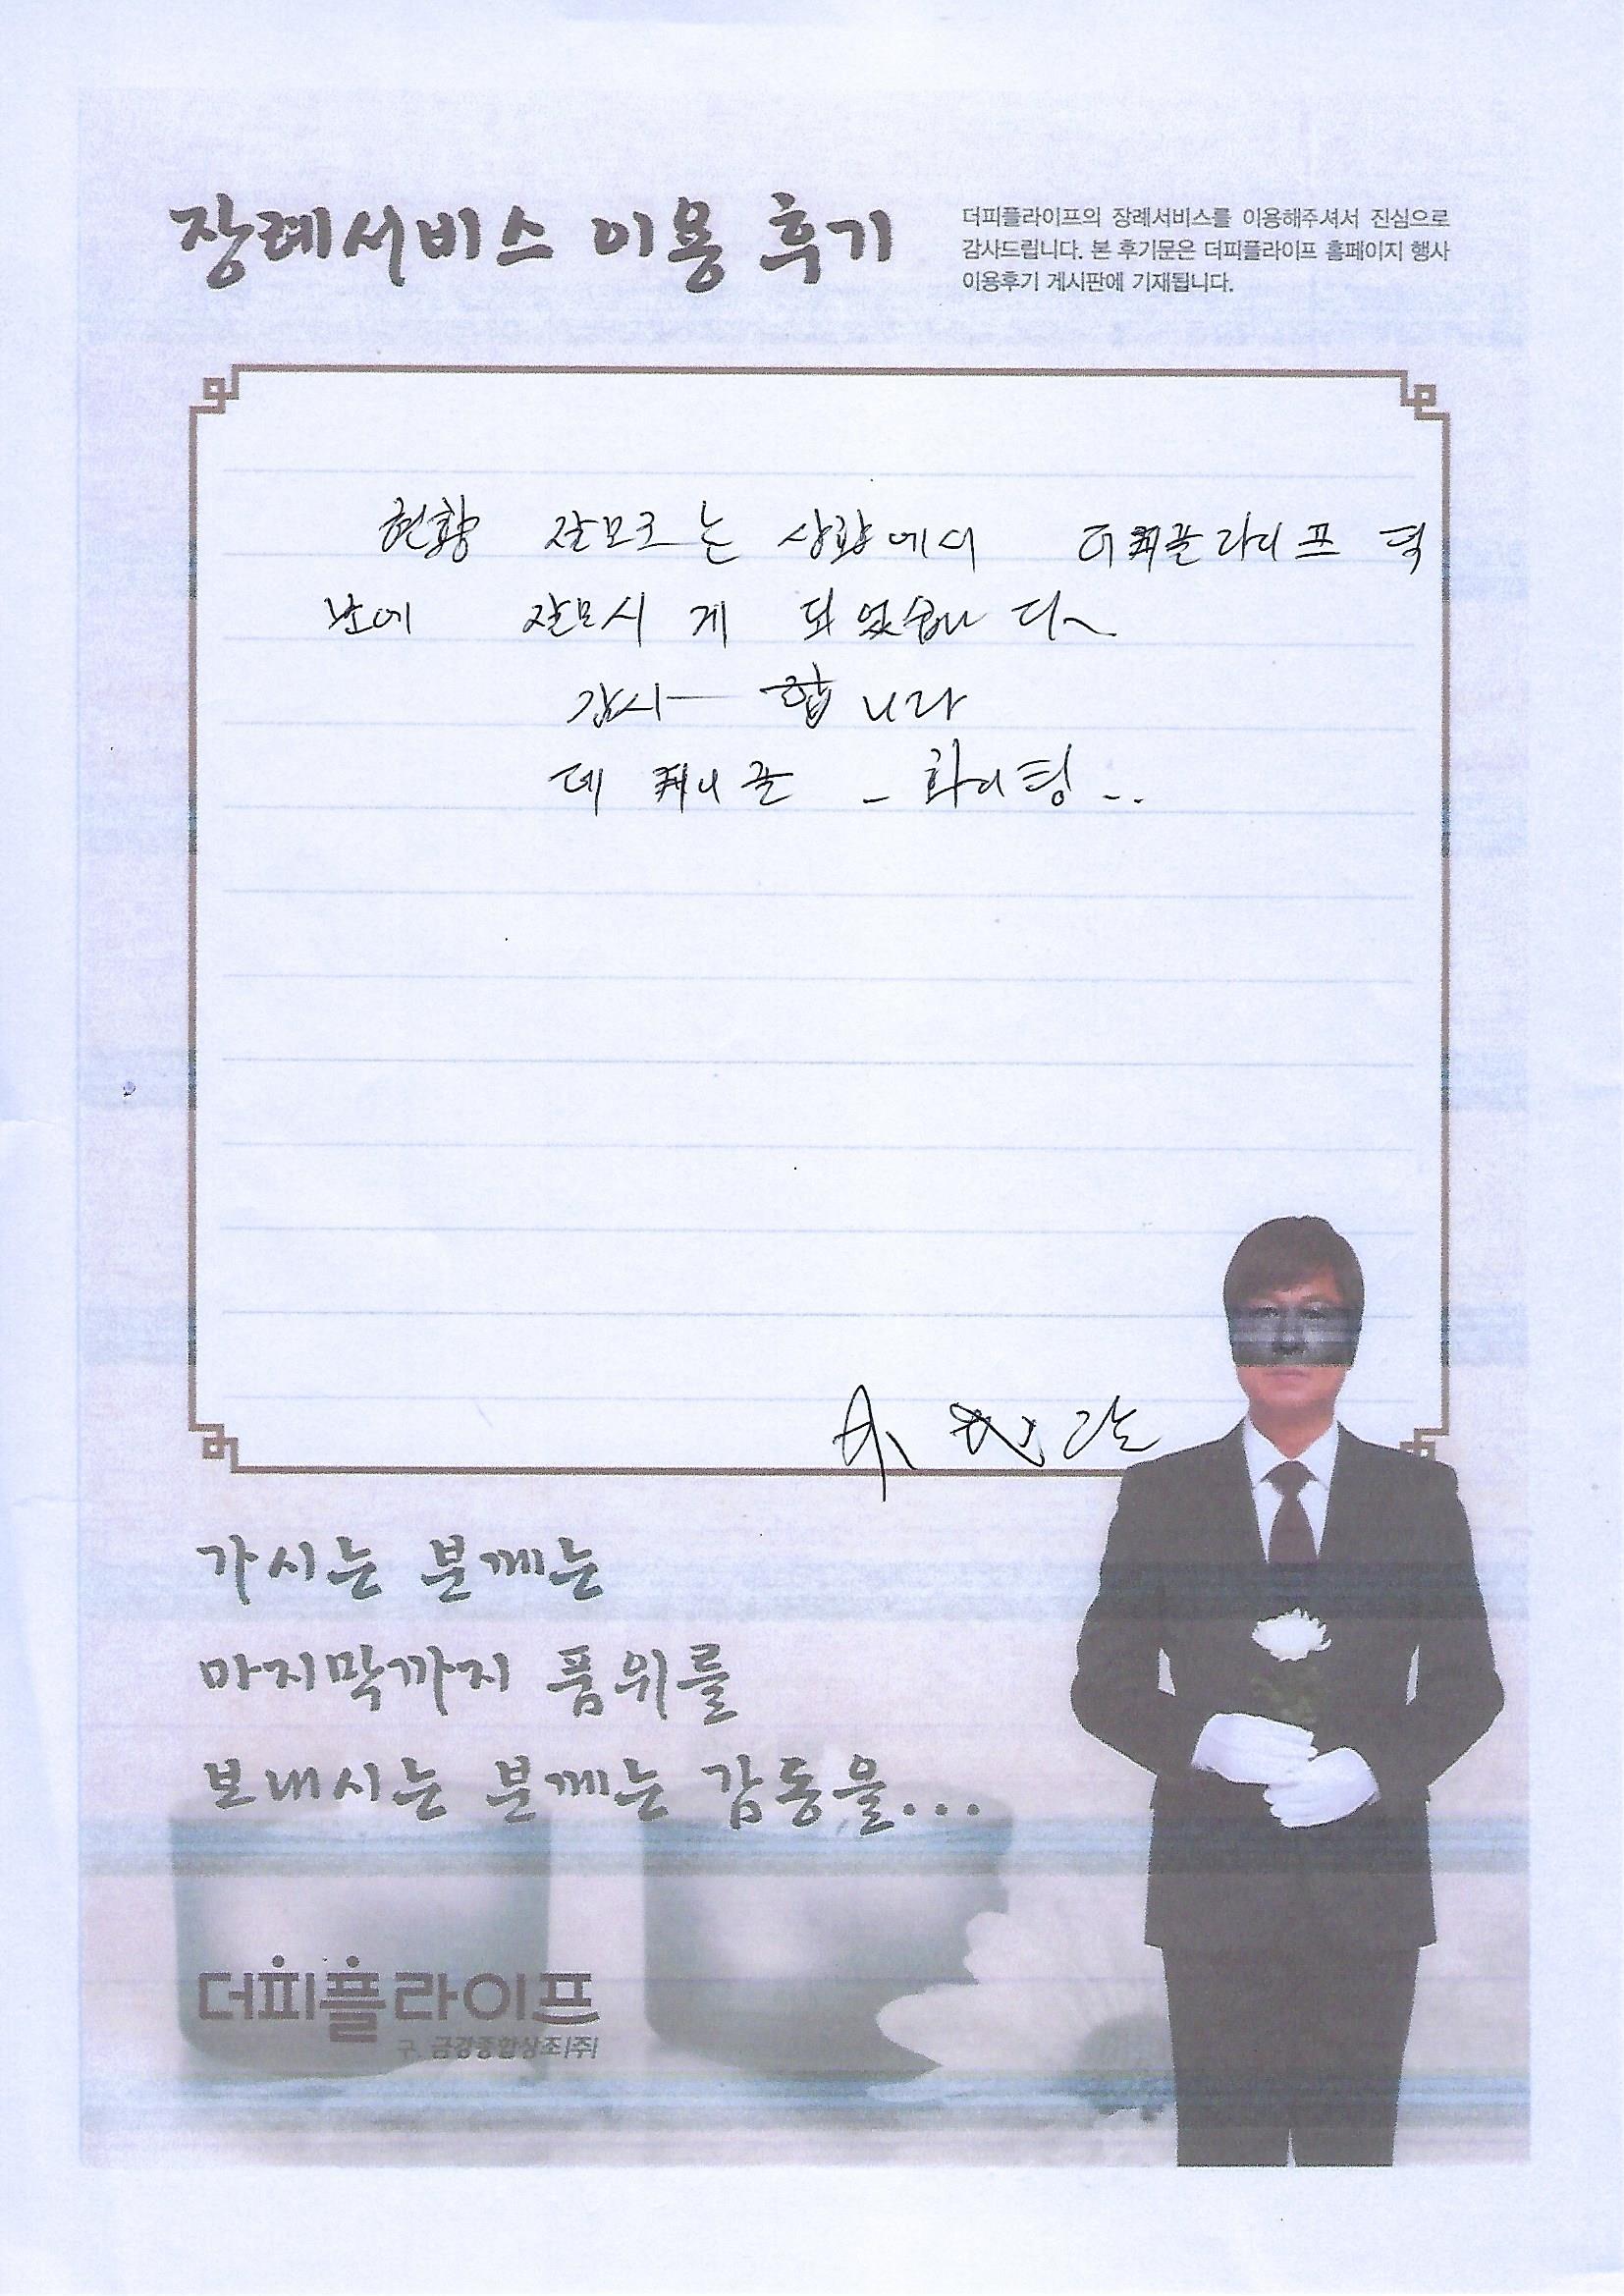 장례서비스 이용 후기
더피플라이프의 장례서비스를 이용해주셔서 진심으로
감사드립니다. 본 후기문은 더피플라이프 홈페이지 행사
이용후기 게시판에 기재됩니다.
현황 잘모르는 상황에서 더피플라이프 덕
분에 잘모시게 되었습니다
감사 합니다
더 피플 - 화이팅 ...
가시는 분께는
마지막까지 품위를
보내시는 분께는 감동을...
더피플라이프
구. 금강종합상조(주)